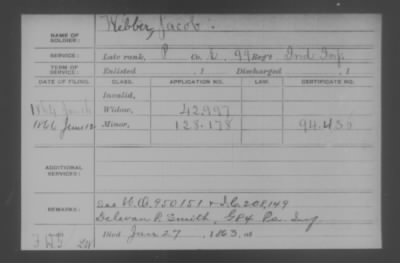 NAME OF SOLDIER: Webber, Jacob.
SERVICE: Late rank, P Co. E, 99 Reg't Ind Inf.
TERM OF SERVICE: Enlisted , 1 Discharged , 1
DATE OF FILING. CLASS. APPLICATION NO. LAW. CERTIFICATE NO.
Invalid,
1864 Widow, 42997
1866 June 12 Minor, 128.178 94.430
ADDITIONAL SERVICES:
REMARKS: See W.O. 950151 + I.C. 208,149
Delevan P. Smith, G 84 Pa. Inf.
Died Jan 27, 1863, at